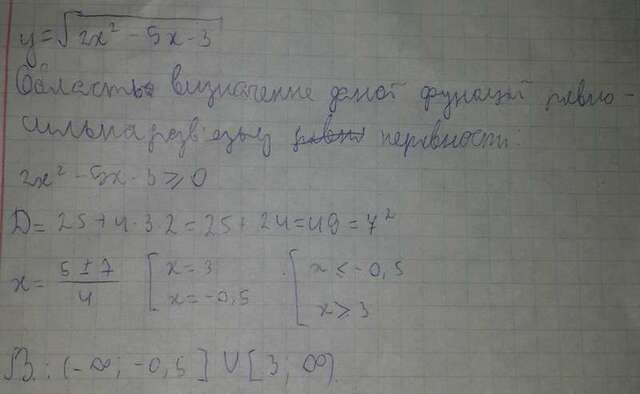 y=√(2x² - 5x - 3)
Область визначення даної функції рівно-
сильна розв'язку нерівності:
2x² - 5x - 3 ⩾ 0
D = 25 + 4·3·2 = 25 + 24 = 49 = 7²
x = (5 ± 7)/4 [x = 3 x = -0,5 [x ⩽ -0,5 x ⩾ 3
В.: (-∞; -0,5] ∪ [3; ∞).